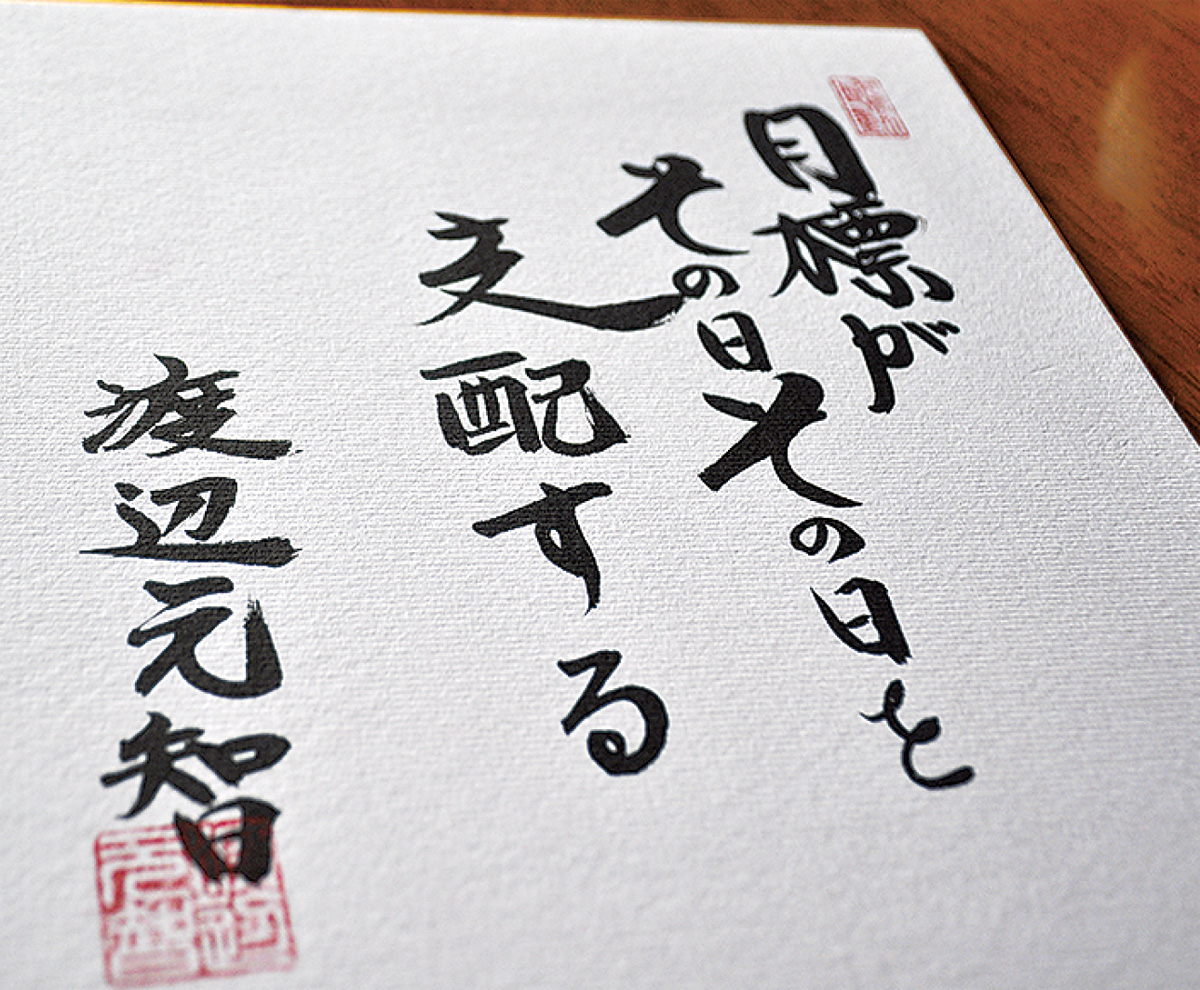 目標が
その日その日を
支配する
渡辺元智